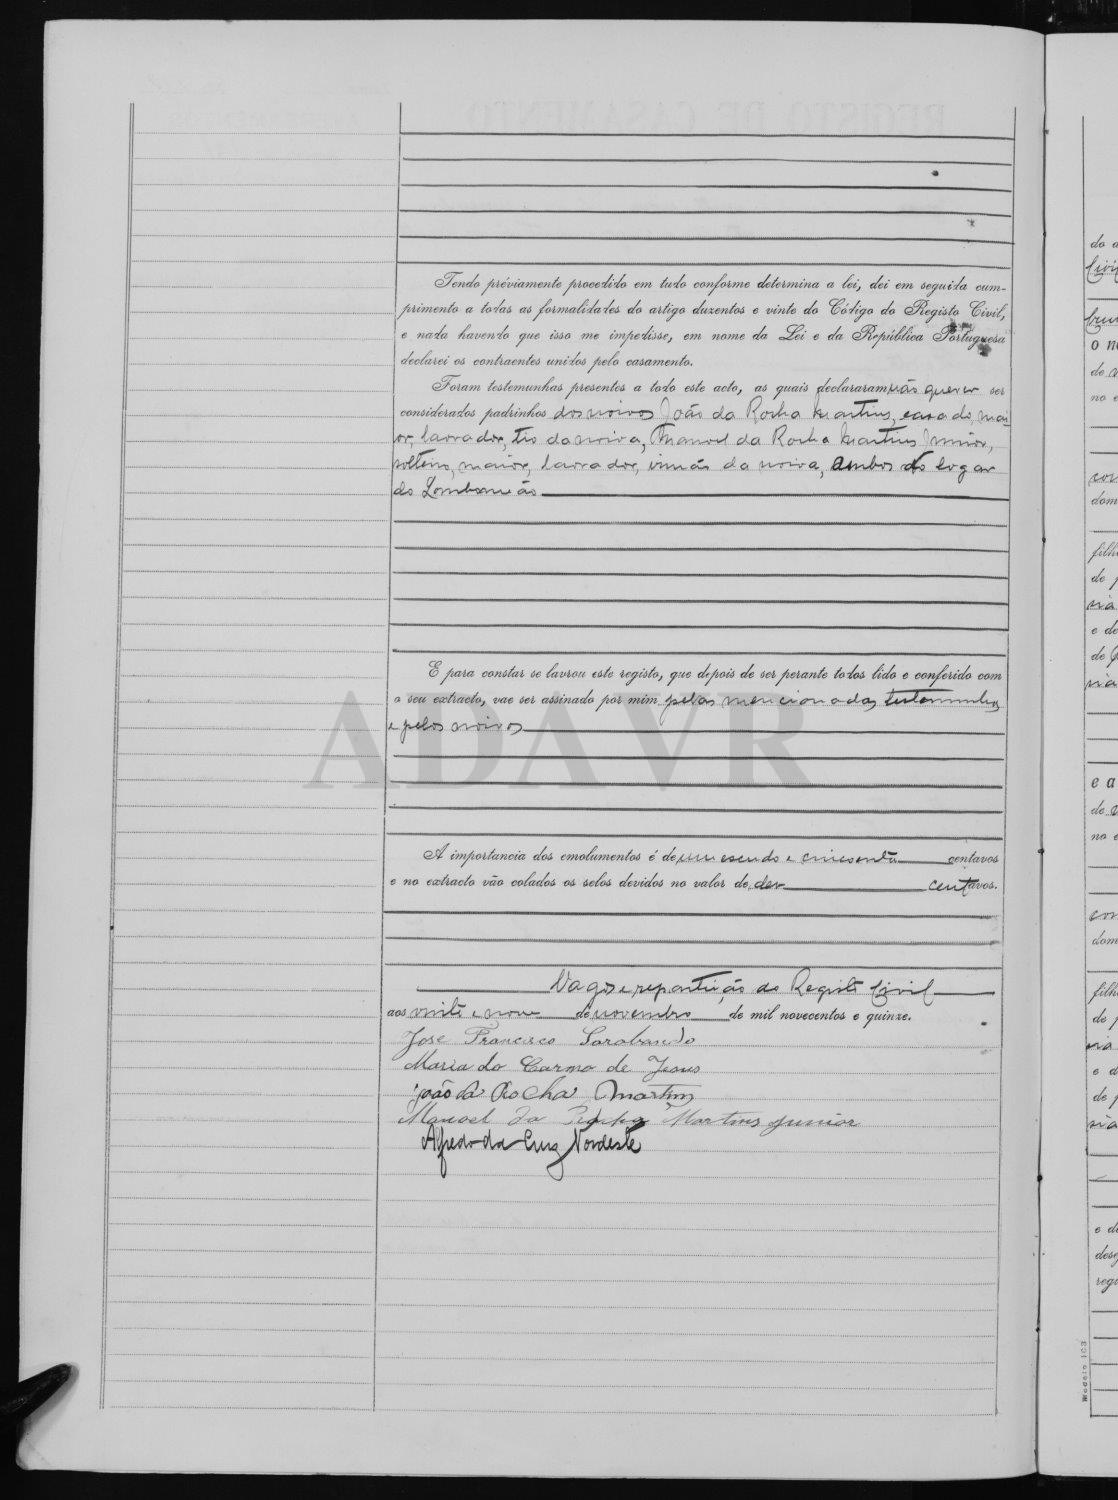 Tendo préviamente procedido em tudo conforme determina a lei, dei em seguida cum-
primento a todas as formalidades do artigo duzentos e vinte do Código do Registo Civil,
e nada havendo que isso me impedisse, em nome da Lei e da República Portuguesa
declarei os contraentes unidos pelo casamento.
Foram testemunhas presentes a todo este acto, as quais declararam não querer ser
considerados padrinhos dos noivos João da Rocha Martins, casado, mai-
or, lavrador, tio da noiva, Manuel da Rocha Martins Junior,
solteiro, maior, lavrador, irmão da noiva, ambos do logar
do Lombomeão
E para constar se lavrou este registo, que depois de ser perante todos lido e conferido com
o seu extracto, vae ser assinado por mim pelas mencionadas testemunhas
e pelos noivos
ADAVR
A importancia dos emolumentos é de um escudo e cincoenta centavos
e no extracto vão colados os selos devidos no valor de dez centavos.
Vagos e repartição do Registo Civil
aos vinte e nove de novembro de mil novecentos e quinze.
José Francisco Sarabando
Maria do Carmo de Jesus
João da Rocha Martins
Manoel da Rocha Martins Junior
Alfredo da Cruz Nordeste
do
Civil
o n
de
no e
dom
filh
de p
e de
de
e a
de
no e
dom
filh
de p
e d
de p
e de
dese
regi
Modelo 103